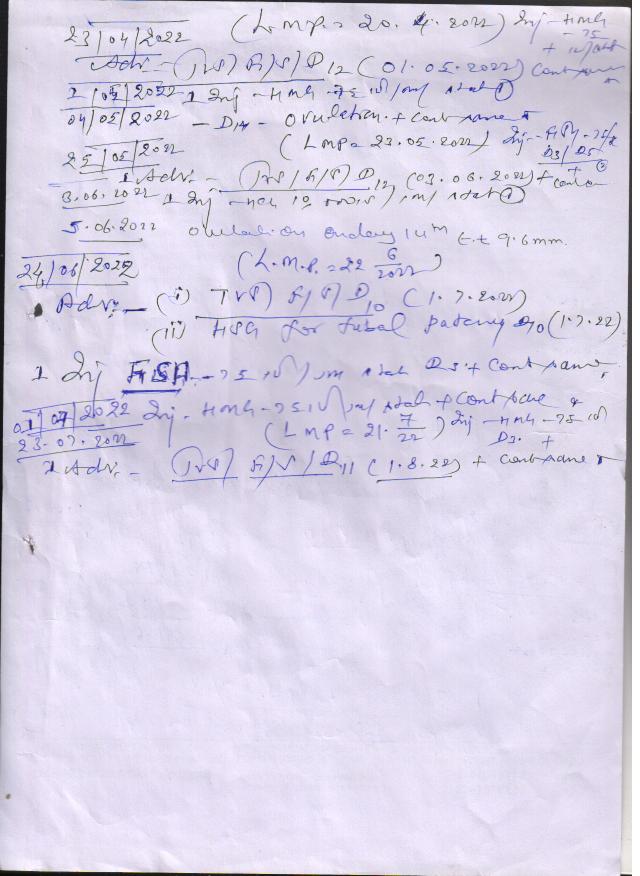 23/04/2022 (L.M.P. = 20.4.2022) Inj - HMG - 75
Adv:- TVS/F/S/D12 (01.05.2022) Cont same
1/05/2022 1 Inj - HMG - 75 IU/im stat ①
04/05/2022 - D14 - ovulation + cont same
25/05/2022 (LMP = 23.05.2022) Inj - 75 D3/D5
1 Adv:- TVS/F/S/D12 (03.06.2022) +
3.06.2022 1 Inj - im/stat ①
5.06.2022 ovulation on day 14th E.t 9.6mm.
24/06/2022 (L.M.P. = 22 6/2022)
Adv:- (i) TVS/F/S/D10 (1.7.2022)
(ii) HSG for tubal patency D10 (1.7.22)
1 Inj - 75 IU/im stat + Cont same
01/07/2022 Inj - HMG - 75 IU/im stat + Cont same
23.07.2022 (LMP = 21. 7/22) Inj - HMG - 75 IU D3. +
1 Adv:- TVS/F/S/D11 (1.8.22) + Cont same